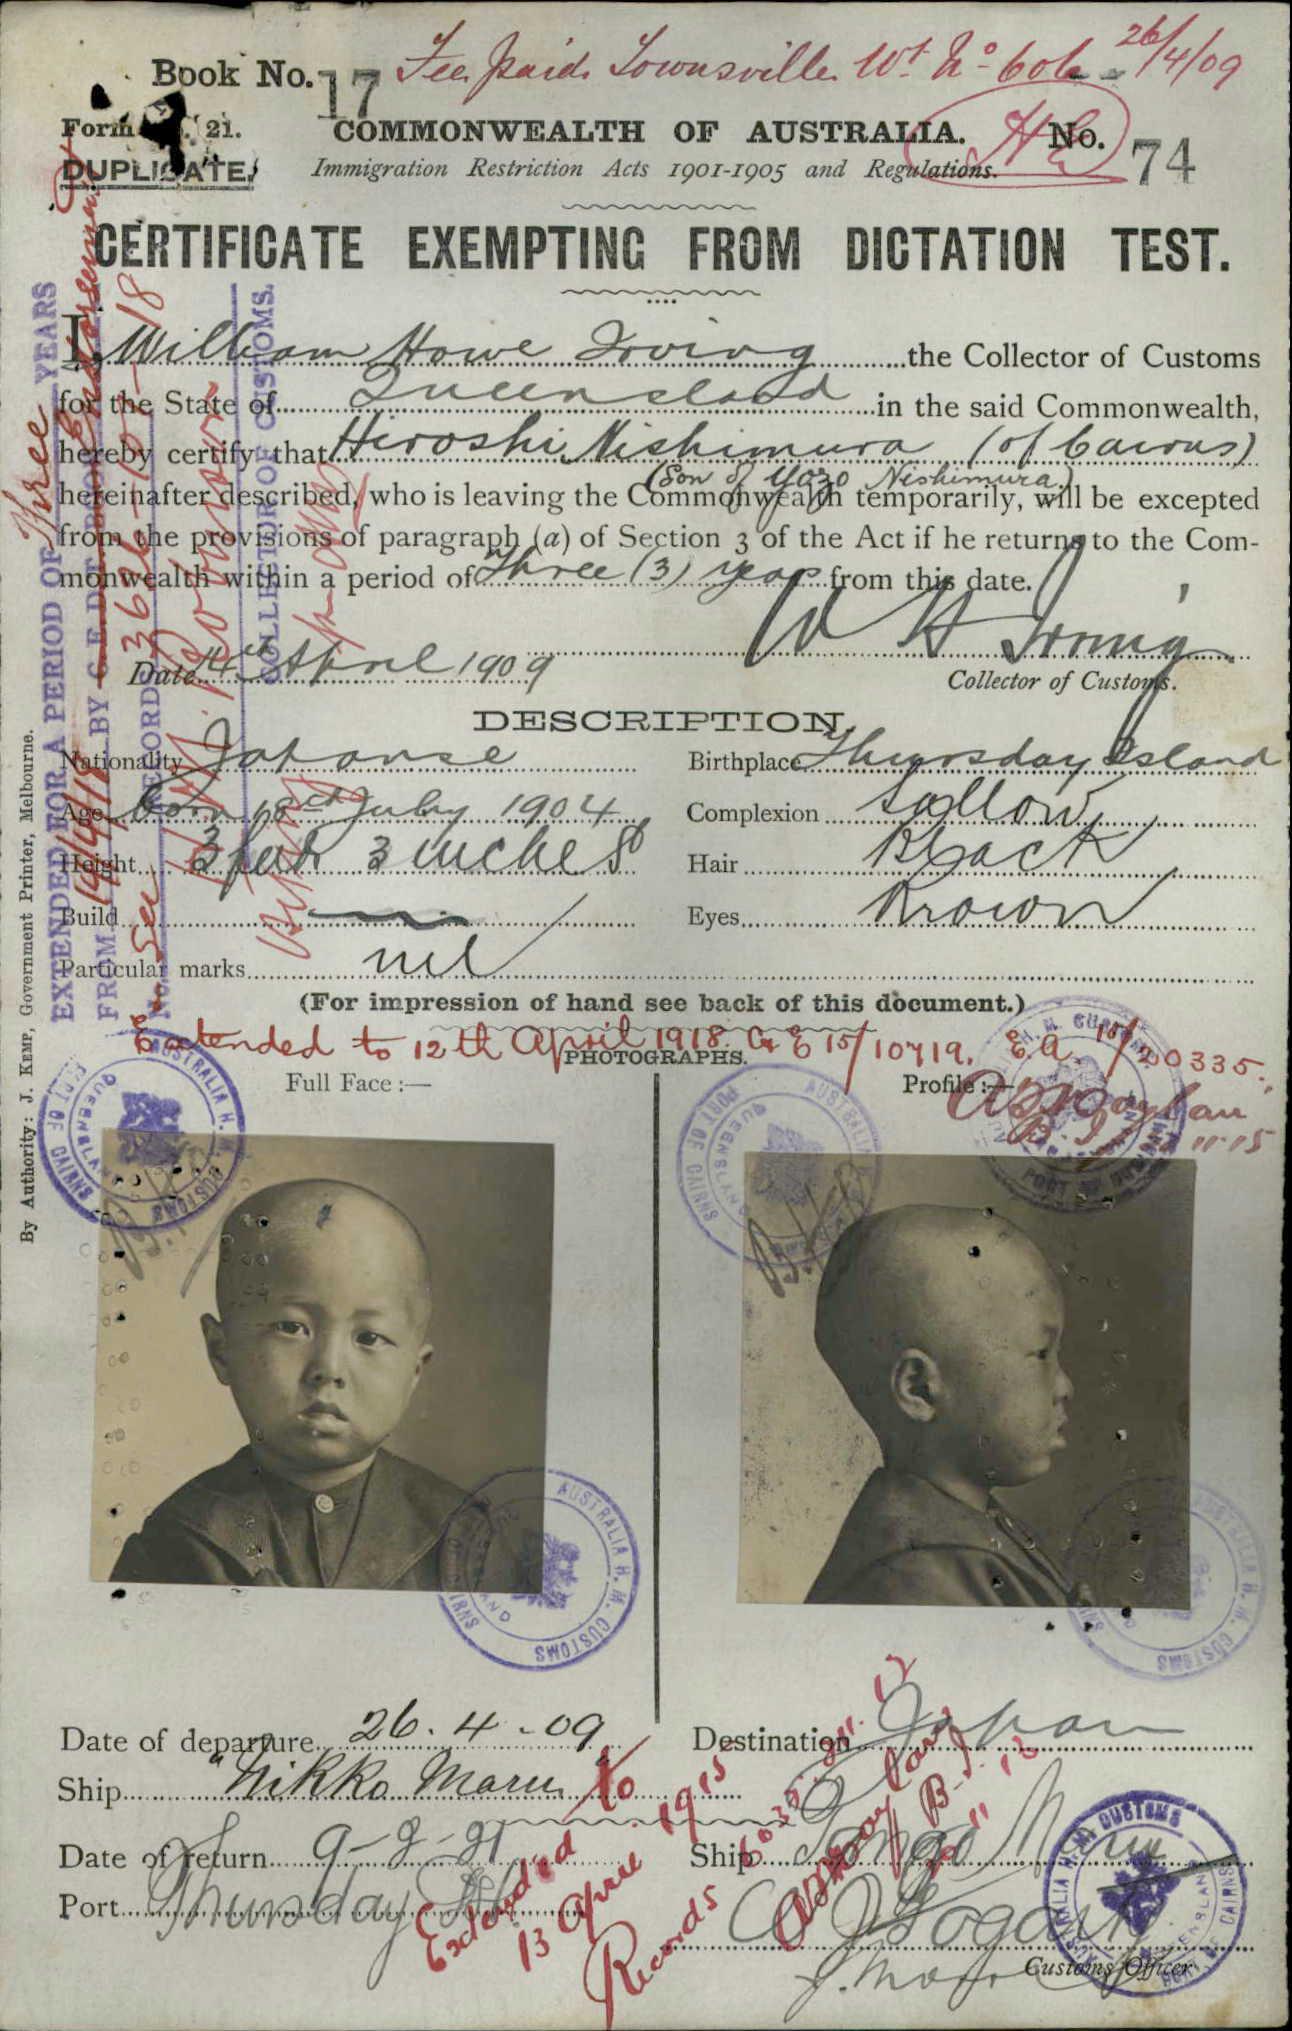 Book No. 17 Fee paid Townsville Wt. No 606 26/4/09
Form 21.
COMMONWEALTH OF AUSTRALIA. No. 74
DUPLICATE.
Immigration Restriction Acts 1901-1905 and Regulations.
CERTIFICATE EXEMPTING FROM DICTATION TEST.
I, William Howe Irving the Collector of Customs
for the State of Queensland in the said Commonwealth,
hereby certify that Hiroshi Nishimura (of Cairns)
(Son of Yozo Nishimura)
hereinafter described, who is leaving the Commonwealth temporarily, will be excepted
from the provisions of paragraph (a) of Section 3 of the Act if he returns to the Com-
monwealth within a period of Three (3) years from this date.
W H Irving
Date 14th April 1909
Collector of Customs.
DESCRIPTION
Nationality Japanese
Birthplace Thursday Island
Age born 18th July 1904
Complexion Sallow
Height 3 feet 3 inches
Hair Black
Build
Eyes Brown
Particular marks nil
(For impression of hand see back of this document.)
Extended to 12th April 1918. C & E 15/10719. E.A. 15/20335.
PHOTOGRAPHS.
Full Face :—
Profile :—
11.15
Date of departure 26.4.09
Destination Japan
Ship "Nikko Maru
Date of return 9-2-21
Ship Tango Maru
Port Thursday Isl
Customs Officer.
Extended to
13 April 1915
Records
EXTENDED FOR A PERIOD OF Three YEARS
FROM 19/4/18 BY
No. RECORDS 3626
COLLECTOR OF CUSTOMS.
See Endorsement
By Authority: J. KEMP, Government Printer, Melbourne.
AUSTRALIA H. M. CUSTOMS
PORT OF CAIRNS
QUEENSLAND
AUSTRALIA H. M. CUSTOMS
PORT OF CAIRNS
QUEENSLAND
AUSTRALIA H. M. CUSTOMS
AUSTRALIA H. M. CUSTOMS
AUSTRALIA H. M. CUSTOMS
PORT OF CAIRNS
QUEENSLAND